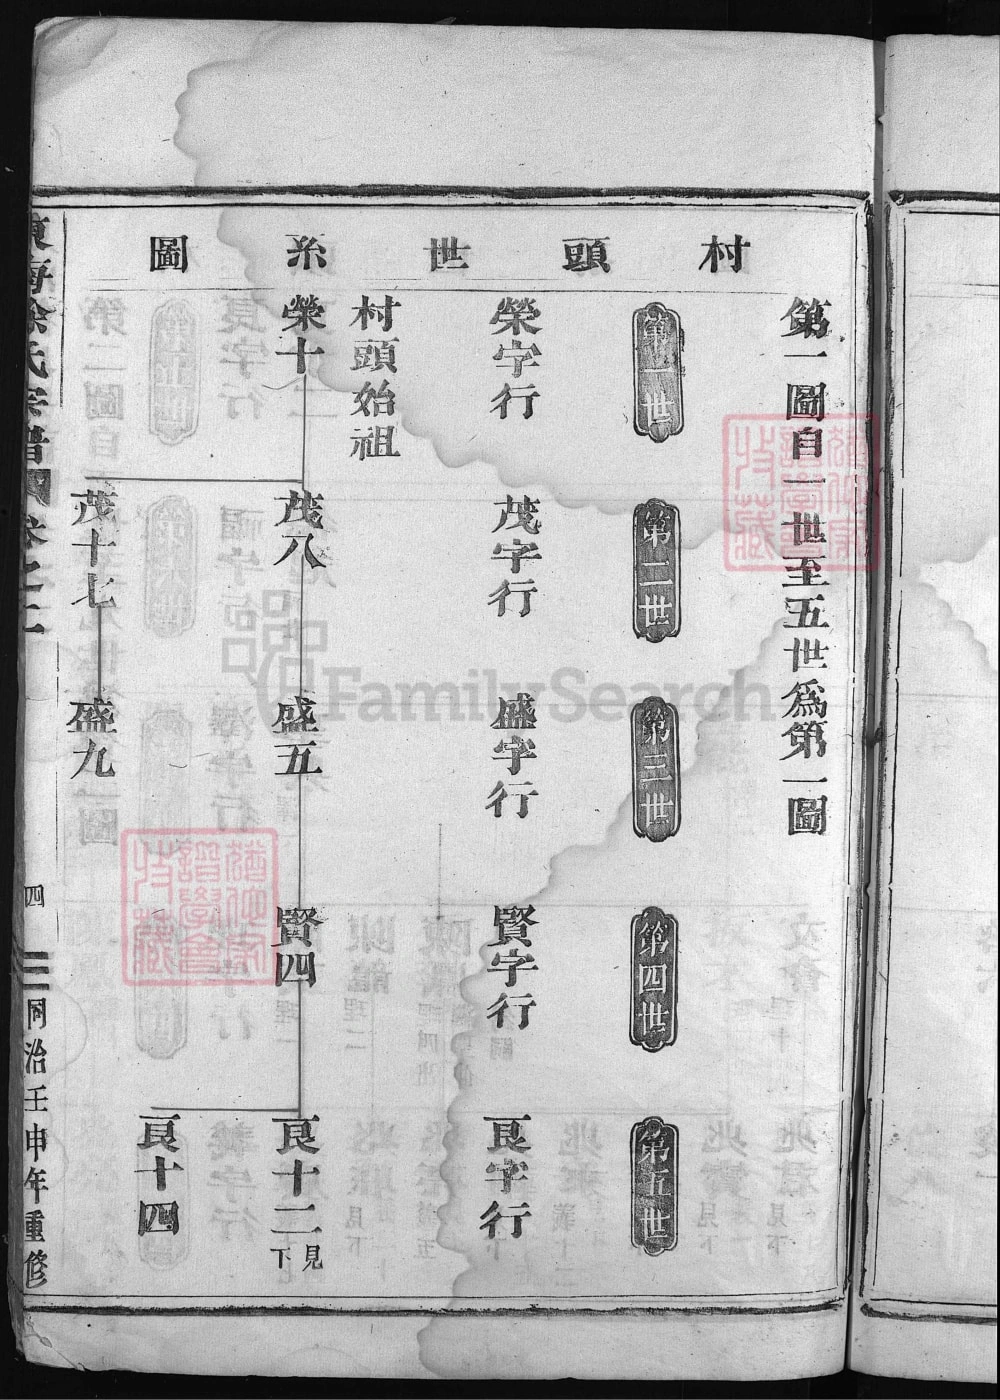 村頭世系圖
第一圖自一世至五世爲第一圖
第一世
第二世
第三世
第四世
第五世
榮字行
茂字行
盛字行
賢字行
良字行
村頭始祖
榮十
茂八
盛五
賢四
良十二
見下
良十四
茂十七
盛九
東海徐氏宗譜
卷之二
四
同治壬申年重修
FamilySearch